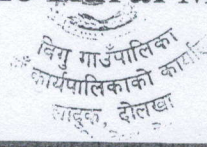 विगु गाउँपालिका
कार्यपालिकाको कार्या
लादुक, दोलखा